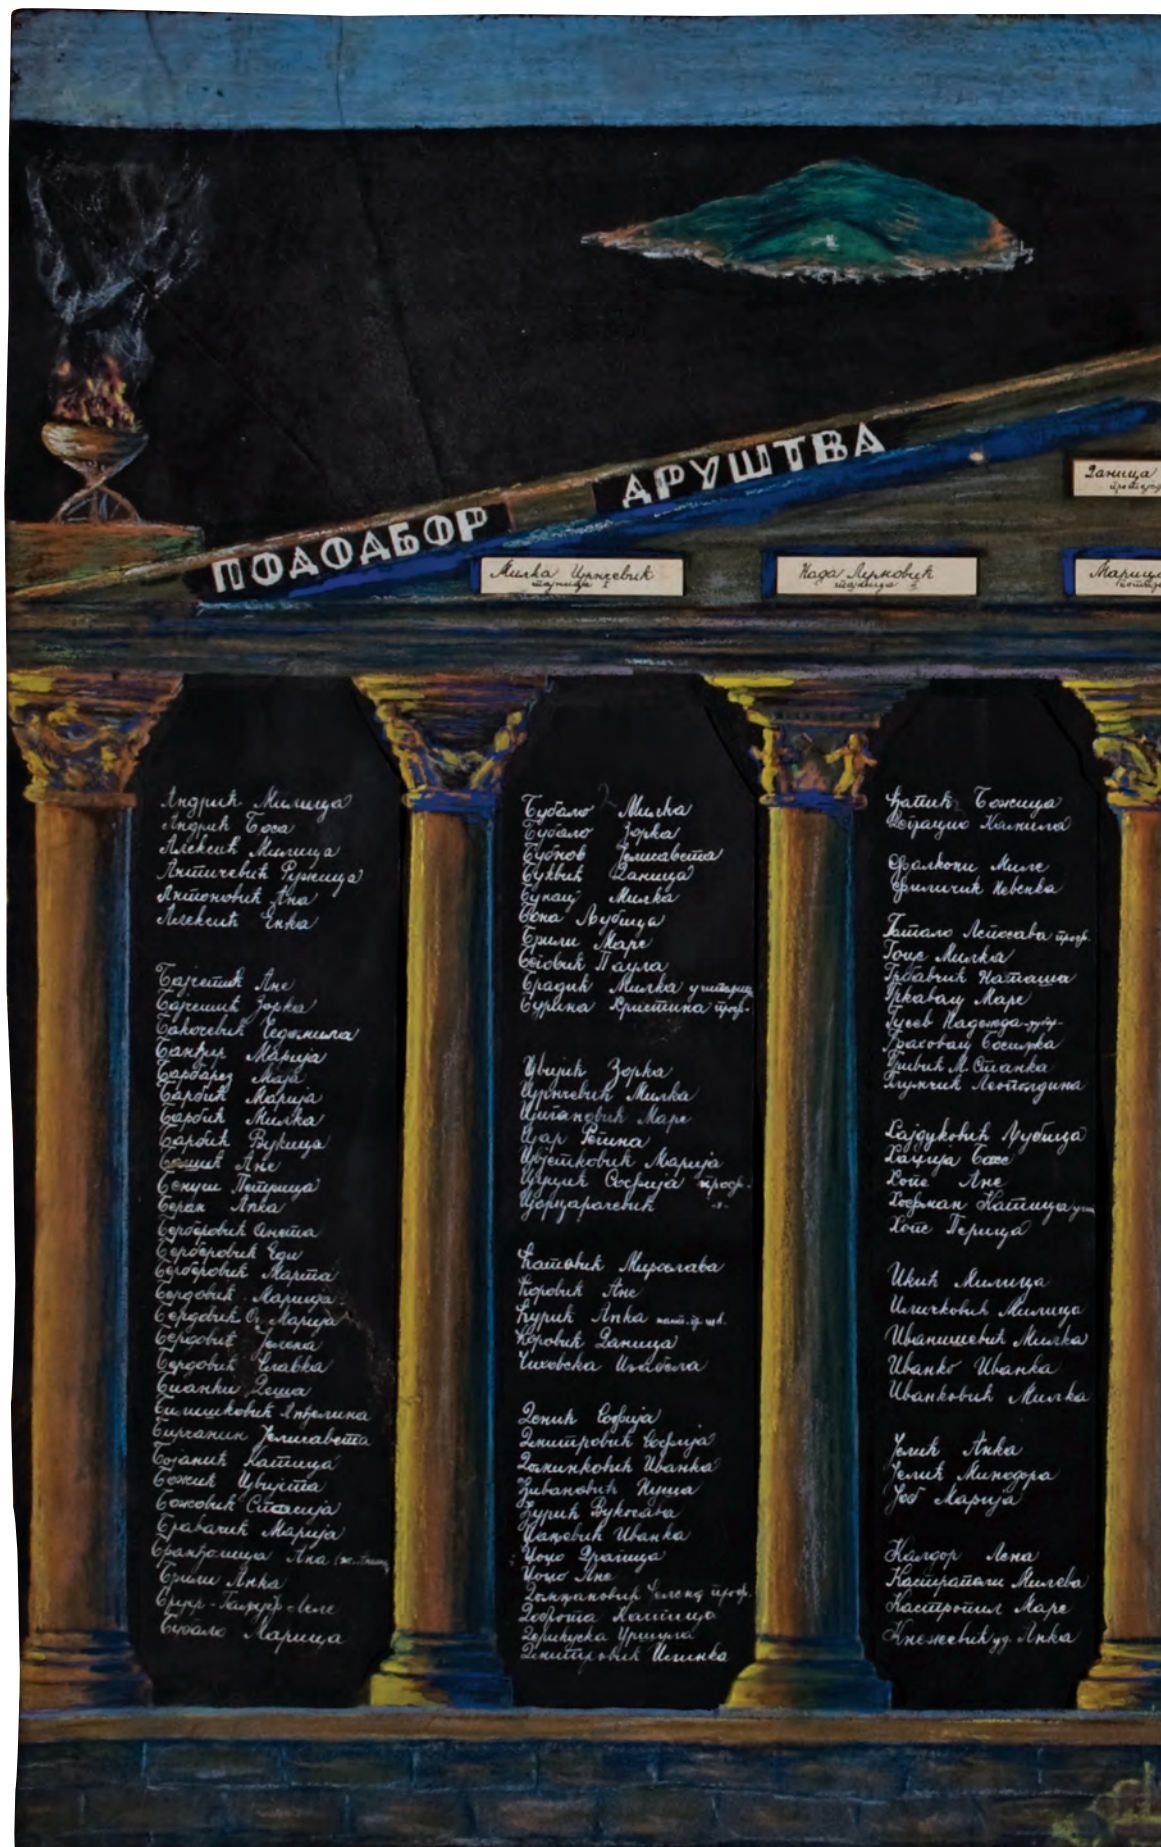 ПОДОДБОР ДРУШТВА
Даница
Милка Црнчевић
тајница I
Нада Лумовић
тајница II
Марица
Андрић Милица
Андрић Боса
Алексић Милица
Античевић Ружица
Антоновић Ана
Алексић Енка
Бајчетић Ане
Зорка
Бакочевић Чедомила
Марија
Барбарез Маја
Барбић Марија
Барбић Милка
Барбић Вукица
Ане
Бенуси Петрица
Беран Анка
Берберовић Анета
Берберовић Еди
Берберовић Марта
Бердовић Марија
Бердовић Марија
Бердовић Јелена
Бердовић Славка
Бианки Деша
Билишковић Анђелина
Бирчанин Јелисавета
Бојанић Катица
Божић Цвијета
Божовић Стасија
Брабачић Марија
Ана
Брили Анка
Бубало Марица
Бубало Милка
Бубало Зорка
Бубнов Јелисавета
Буквић Даница
Бунац Милка
Бона Љубица
Брили Маре
Паула
Брадић Милка
Бурина Христина проф.
Цвијић Зорка
Црнчевић Милка
Цигановић Маре
Цар Регина
Цвјетковић Марија
Софија проф.
Ћатовић Мирослава
Ћоровић Ане
Ћурић Анка
Ћоровић Даница
Чиховска Изабела
Денић Софија
Димитровић Софија
Доминковић Иванка
Живановић Нуша
Вукосава
Иванка
Цоцо Драгица
Цоцо Ане
проф.
Доброта Катица
Димитровић Илинка
Ђатић Божица
Камила
Фалкони Миле
Филичић Невенка
Гатало Лепосава проф.
Гоце Милка
Грбавчић Наташа
Гркавац Маре
Гусев Надежда
Граховац Босиљка
Гривић М. Станка
Леополдина
Хајдуковић Љубица
Хаџија
Хопе Ане
Хофман Катица
Хопе Перица
Икић Милица
Иличковић Милица
Иванишевић Милка
Иванко Иванка
Иванковић Милка
Јелић Анка
Јелић Минодора
Јоб Марија
Калдор Лена
Кастрапели Милева
Кастропил Маре
Кнежевић уд. Анка